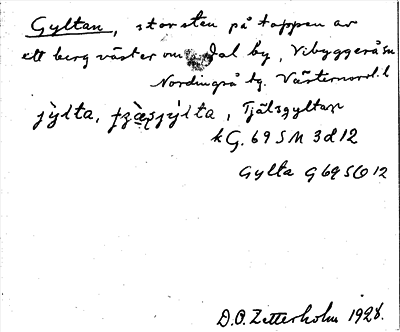 Gyltan, stor sten på toppen av
ett berg väster om Dal by, Vibyggerå sn
Nordingrå tg. Västernorrl. l
jỳlta, jylta, Tjälsgyltan
kG. 69 S M 3 d 12
Gylta G 69 S Ö 12
D.O. Zetterholm 1928.